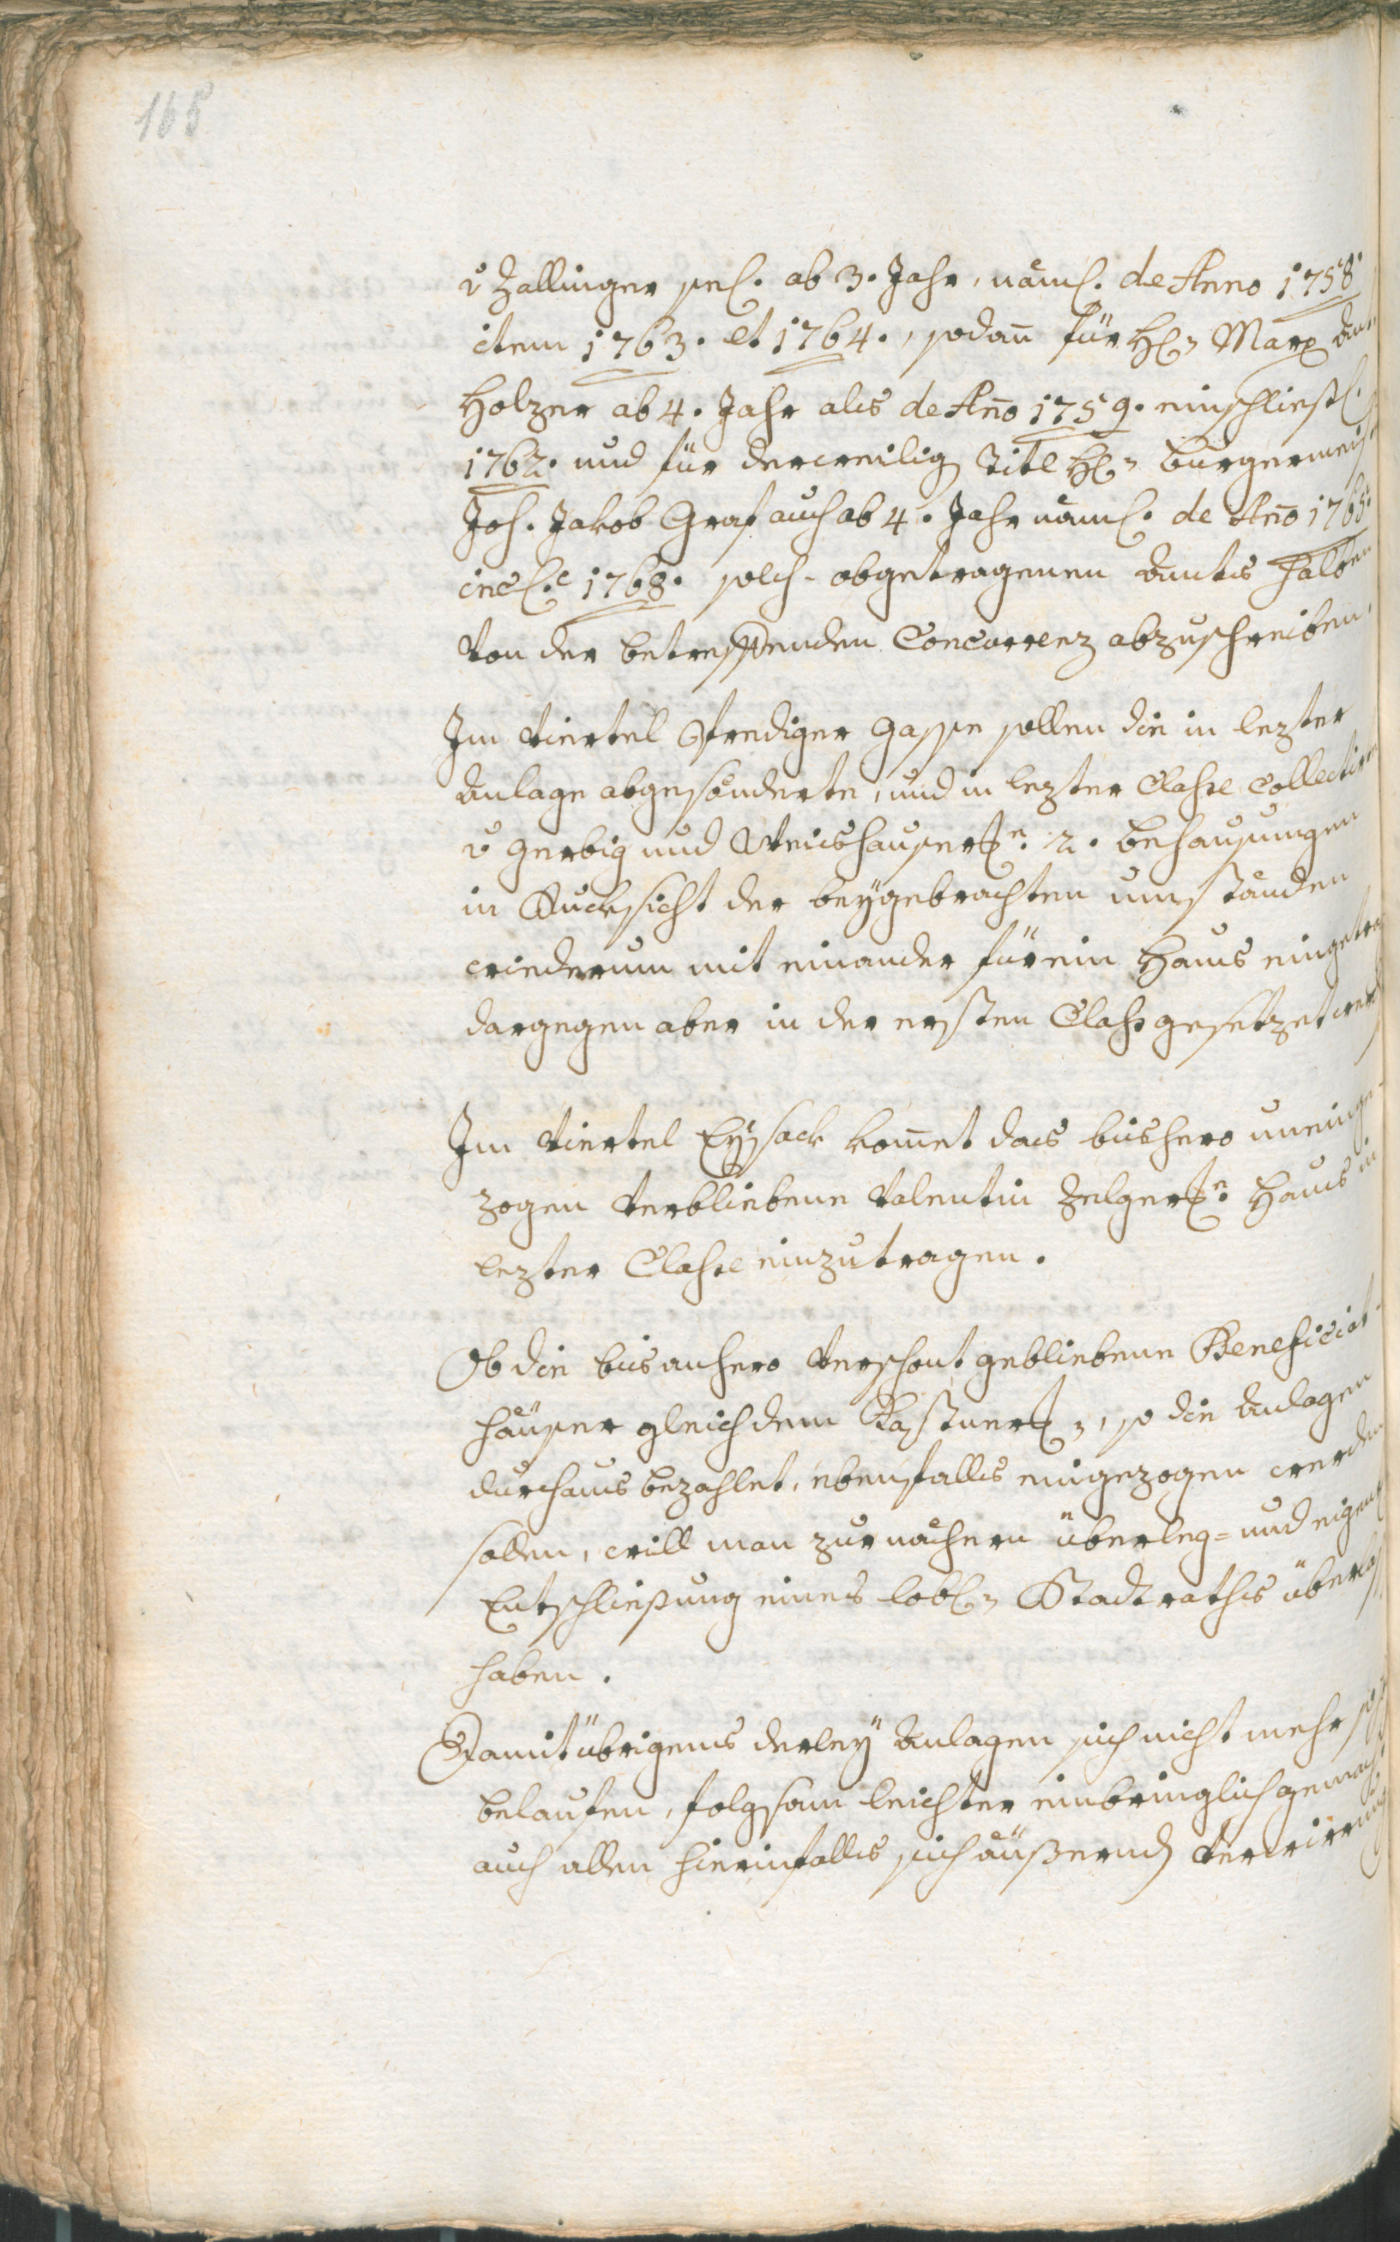 165
v Zallinger sel. ab 3. Jahr, näml. de Anno 1758.
item 1763. et 1764., sodann für H[er]n Marx Ant.
Holzer ab 4. Jahr als de Ano 1759. einschließl.
1762. und für derweilig Titl H[er]n Burgermeist
Joh. Jakob Graf auch ab 4. Jahr näml. de Ano 1765.
incl.e 1768. solch-obgetragenen Amtes halber
von der betreffenden Concurrenz abzuschreiben.
Im Viertel Prediger Gasse sollen die in lezter
Anlage abgesönderte, und in lezter Classe Collectirte
v Gerbig und Weishauserisn. 2. Behausungen
in Rucksicht der beygebrachten umständen
wiederum mit einander für ein Haus eingetra
dargegen aber in der ersten Class gesetzet werd
Im Viertel Eysack komet das bishero uneinge
zogen verbliebene Valentin Zelgerisn. Haus in
lezter Classe einzutragen.
Ob die bis anhero verschont gebliebene Beneficiat-
häuser gleich dem Kastnerisn, so die Anlagen
durchaus bezahlet, ebenfalls eingezogen werden
sollen, will man zur nähern überleg- und eigen
Entschließung eines löbln Stadtraths überlass
haben.
Damit übrigens derley Anlagen sich nicht mehr so
belaufen, folgsam leichter einbringlich gemach
auch allen hierinfalls sich äußernd Verwirrung